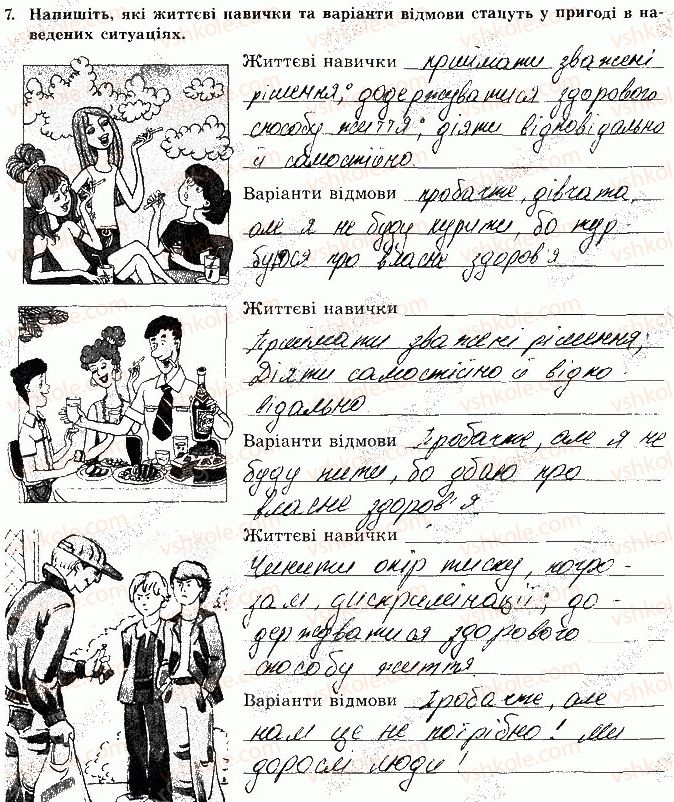 7. Напишіть, які життєві навички та варіанти відмови стануть у пригоді в на-
ведених ситуаціях.
Життєві навички приймати зважені
рішення; додержуватися здорового
способу життя; діяти відповідально
й самостійно.
Варіанти відмови пробачте, дівчата,
але я не буду курити, бо тур-
буюся про власне здоров'я
Життєві навички
Приймати зважені рішення;
Діяти самостійно й відпо
відально
Варіанти відмови Пробачте, але я не
буду пити, бо дбаю про
власне здоров'я
Життєві навички
Чинити опір тиску, погро-
зам, дискримінації; до-
держуватися здорового
способу життя
Варіанти відмови Пробачте, але
нам це не потрібно! Ми
дорослі люди!
vshkole.com